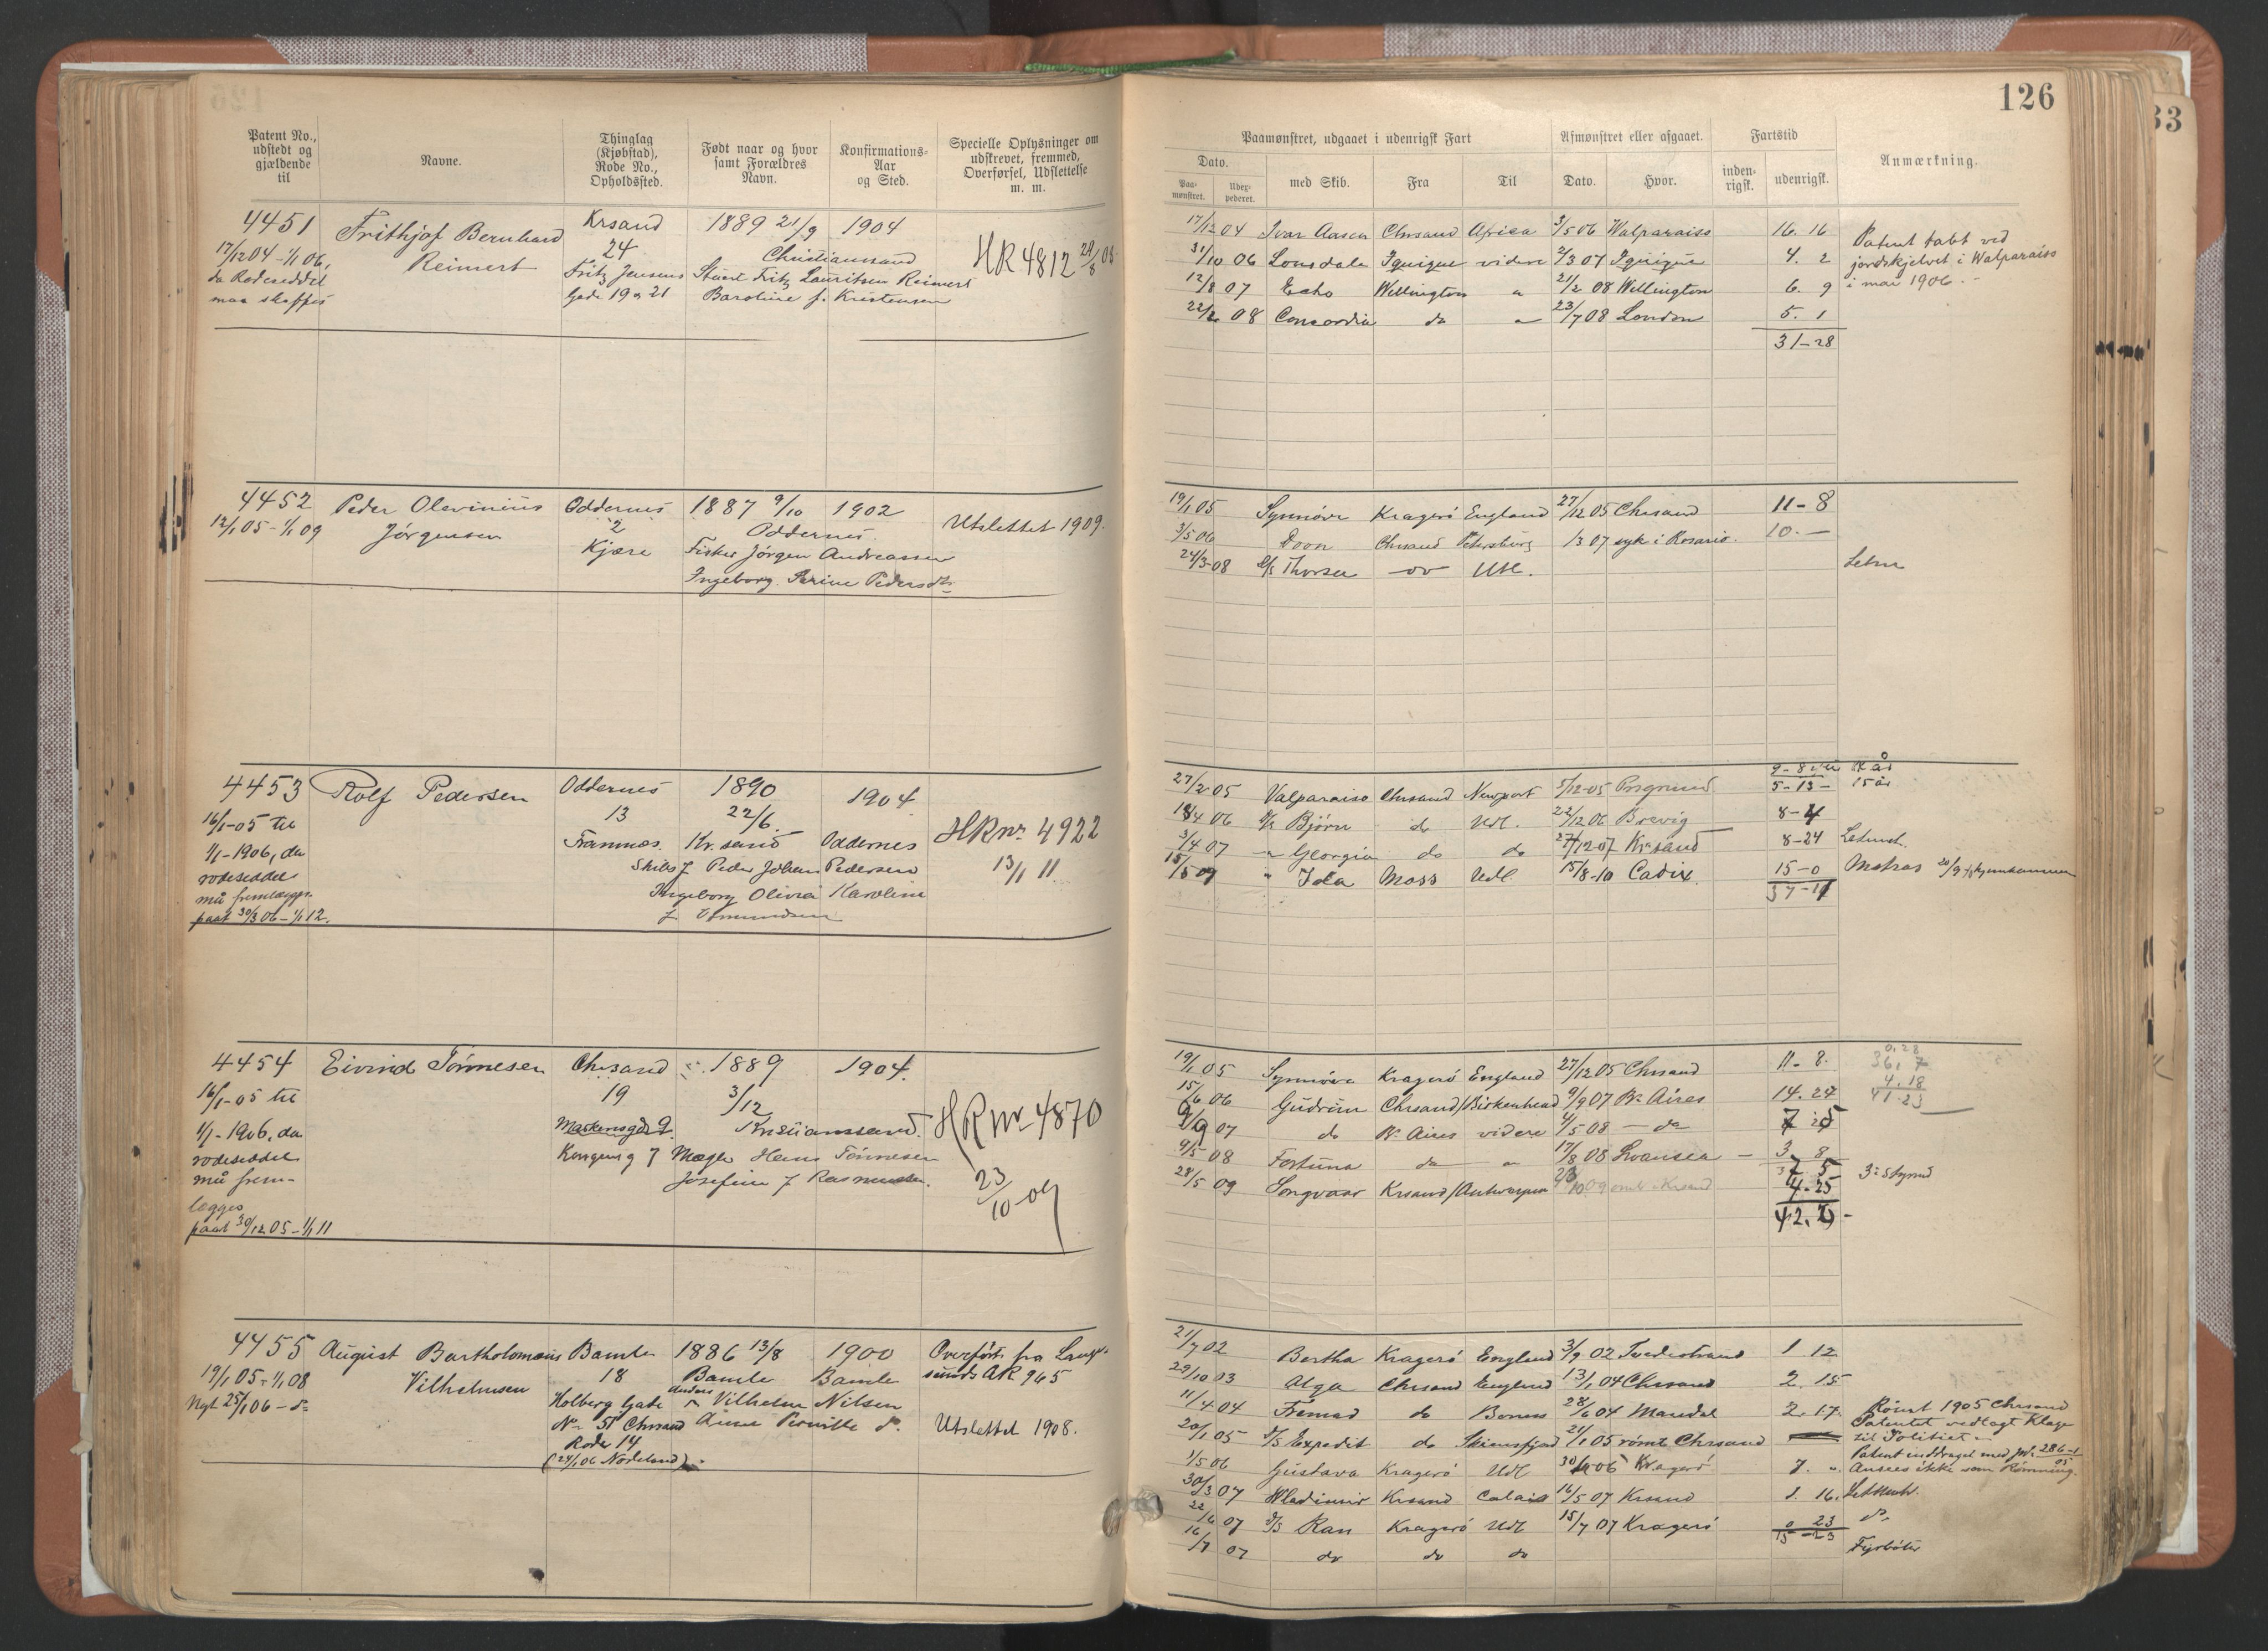 126
33
Patent No., udstedt og gjældende til
Navne.
Thinglag (Kjøbstad), Rode No., Opholdssted.
Født naar og hvor samt Forældres Navn.
Konfirmations-Aar og Sted.
Specielle Oplysninger om udskrevet, fremmed, Overførsel, Udslettelse m. m.
Paamønstret, udgaaet i udenrigsk Fart
Afmønstret eller afgaaet.
Fartstid
Anmærkning.
Dato.
Paa-mønstret.
Udex-pederet.
med Skib.
Fra
Til
Dato.
Hvor.
inden-rigsk.
udenrigsk.
4451 Frithjof Bernhard Krsand 1889 21/9 1904
17/12 04 - 1/1 06, Reimert 24 Christianssand HR 4812
da Rodeseddel Fritz Jensens Stuert Fritz Lauritsen Reimert
maa skaffes Gade 19 21 Baroline f. Kristensen
17/12 04 Ivar Aasen Chrsand Africa 3/5 06 Walparaiso 16. 16 Patent tabt ved
31/10 06 Lonsdale Iquique videre 2/3 07 Iquique 4. 2 jordskjelvet i Walparaiso
12/8 07 Echo Wellington " 21/2 08 Wellington 6. 9 i mai 1906.
22/2 08 Concordia do " 23/7 08 London 5. 1
31-28
4452 Peder Olevinius Oddernes 1887 9/10 1902
12/1 05 - 1/1 09 Jørgensen 2 Oddernes. Utslettet 1909.
Kjære Fisker Jørgen Andreassen
Ingeborg Serine Pedersdt.
19/1 05 Synnöve Kragerö England 27/12 05 Chrsand 11-8
3/5 06 Doon Chrsand Petersburg 1/3 07 syk i Rosario. 10. —
24/3-08 S/S Thorsen do Utl.
4453 Rolf Pedersen Oddernes 1890 1904
16/1-05 til 13 22/6. HRnr 4922
1/1-1906, da Framnæs. Kr.sand Oddernes
rodeseddel Peder Johan Pedersen 13/1 11
må fremlægges. Ingeborg Olivia Karoline
paat 30/3 06 - 1/1 12.
27/2 05 Valparaiso Chrsand Newport 5/12-05 Porsgrund 5-13- 15 år
18/4 06 S/S Bjørn do Udl. 22/12 06 Brevig 8-4
3/4 07 " Georgia do do 27/12 07 Kr.sand 8-24
15/5 09 " Iola Moss Udl 15/8-10 Cadix. 15-0 Matros
37-11
4454 Eivind Tönnesen Chrsand 1889 1904.
16/1-05 til 19 3/12
1/1-1906, da Markensgd 9. Kristianssand. HR Nr 4870
rodeseddel Kongensg 7 Mægler Hans Tönnesen
må frem- Josefine f Rasmussen. 23/10-09
lægges
paat 30/12 05 - 1/1 11
19/1 05 Synnöve Kragerö England 27/12 05 Chrsand 11-8. 36, 7
15/6 06 Gudrun Chrsand/Birkenhead 9/9 07 Bs Aires 14. 27 4.18
9/9 07 do Bs Aires videre 4/5 08 — do 41.23
9/5 08 Fortuna do " 17/8 08 Swansea — 3. 8
28/5 09 Songvaar Krsand/Antwerpen 4-25
42.
4455 August Bartholomæus Bamle 1886 13/8 1900 Overført fra Lange-
19/1 05 - 1/1 08 Vilhelmsen 18 Bamle Bamle sunds AR 965
Nyt 25/1 06 - do Holberg Gade Anders Vilhelm Nilsen
No 51 Chrsand Anne Pernille do. Utslettet 1908.
Rode 14
(24/1 06 Nodeland)
21/7 02 Bertha Kragerö England 3/9 02 Tvedestrand 1 12
29/10 03 Alga Chrsand England 13/1 04 Chrsand 2. 15
11/4 04 Fremad do Boness 28/6 04 Mandal 2. 17. Römt 1905 Chrsand
Patentet vedlagt Klage
20/1 05 S/S Expedit do Skiensfjord 21/1 05 römt Chrsand til Politiet
1/5 06 Gustava Kragerö Udl 30/11 06 Kragerö 7. ". Ansees ikke som Römning.
30/3 07 Wladimir Krsand Calais 16/5 07 Krsand 1. 16.
22/6 07 S/S Ran Kragerö Udl 15/7 07 Kragerö 0 23 do
15-23
16/7 07 do do do Fyrböter